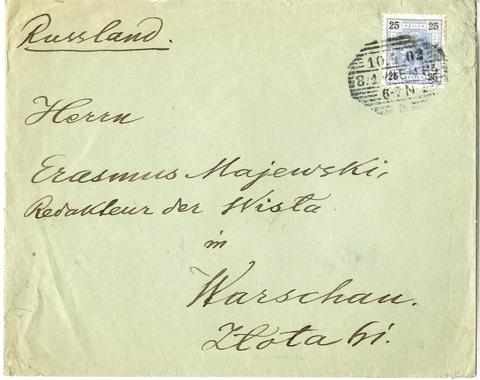 Russland.
25 HELLER 25
10 02
8/1 WIEN
25 25
6-7 N
Herrn
Erasmus Majewski,
Redakteur der Wisła
in
Warschau.
Złota 61.